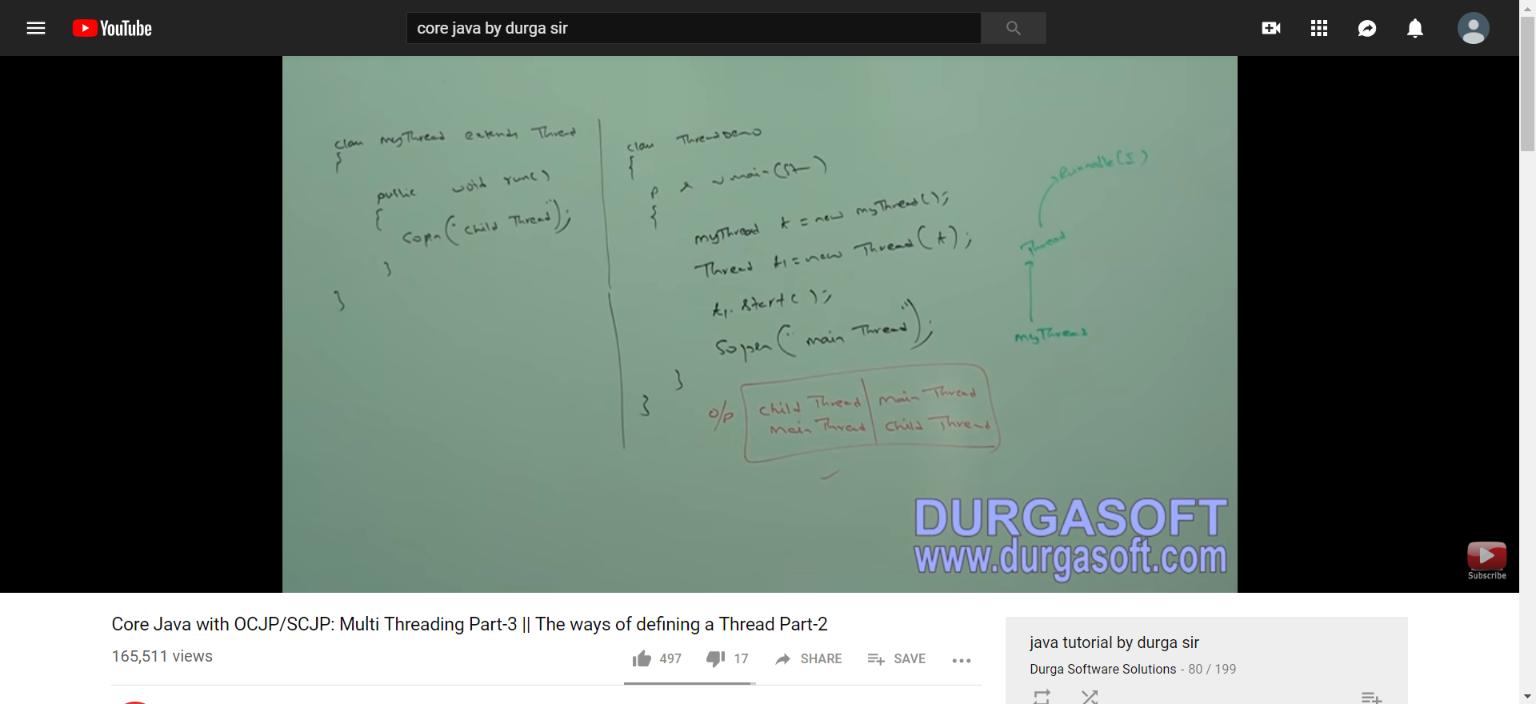 YouTube
core java by durga sir
class myThread extends Thread
{
public void run()
{
Sopln("child Thread");
}
}
class ThreadDemo
{
p s v main(St—)
{
myThread t = new myThread();
Thread t1 = new Thread(t);
t1.start();
Sopln("main Thread");
}
}
o/p
child Thread | main Thread
main Thread | child Thread
Runnable(I)
Thread
myThread
DURGASOFT
www.durgasoft.com
Subscribe
Core Java with OCJP/SCJP: Multi Threading Part-3 || The ways of defining a Thread Part-2
165,511 views
497
17
SHARE
SAVE
java tutorial by durga sir
Durga Software Solutions - 80 / 199